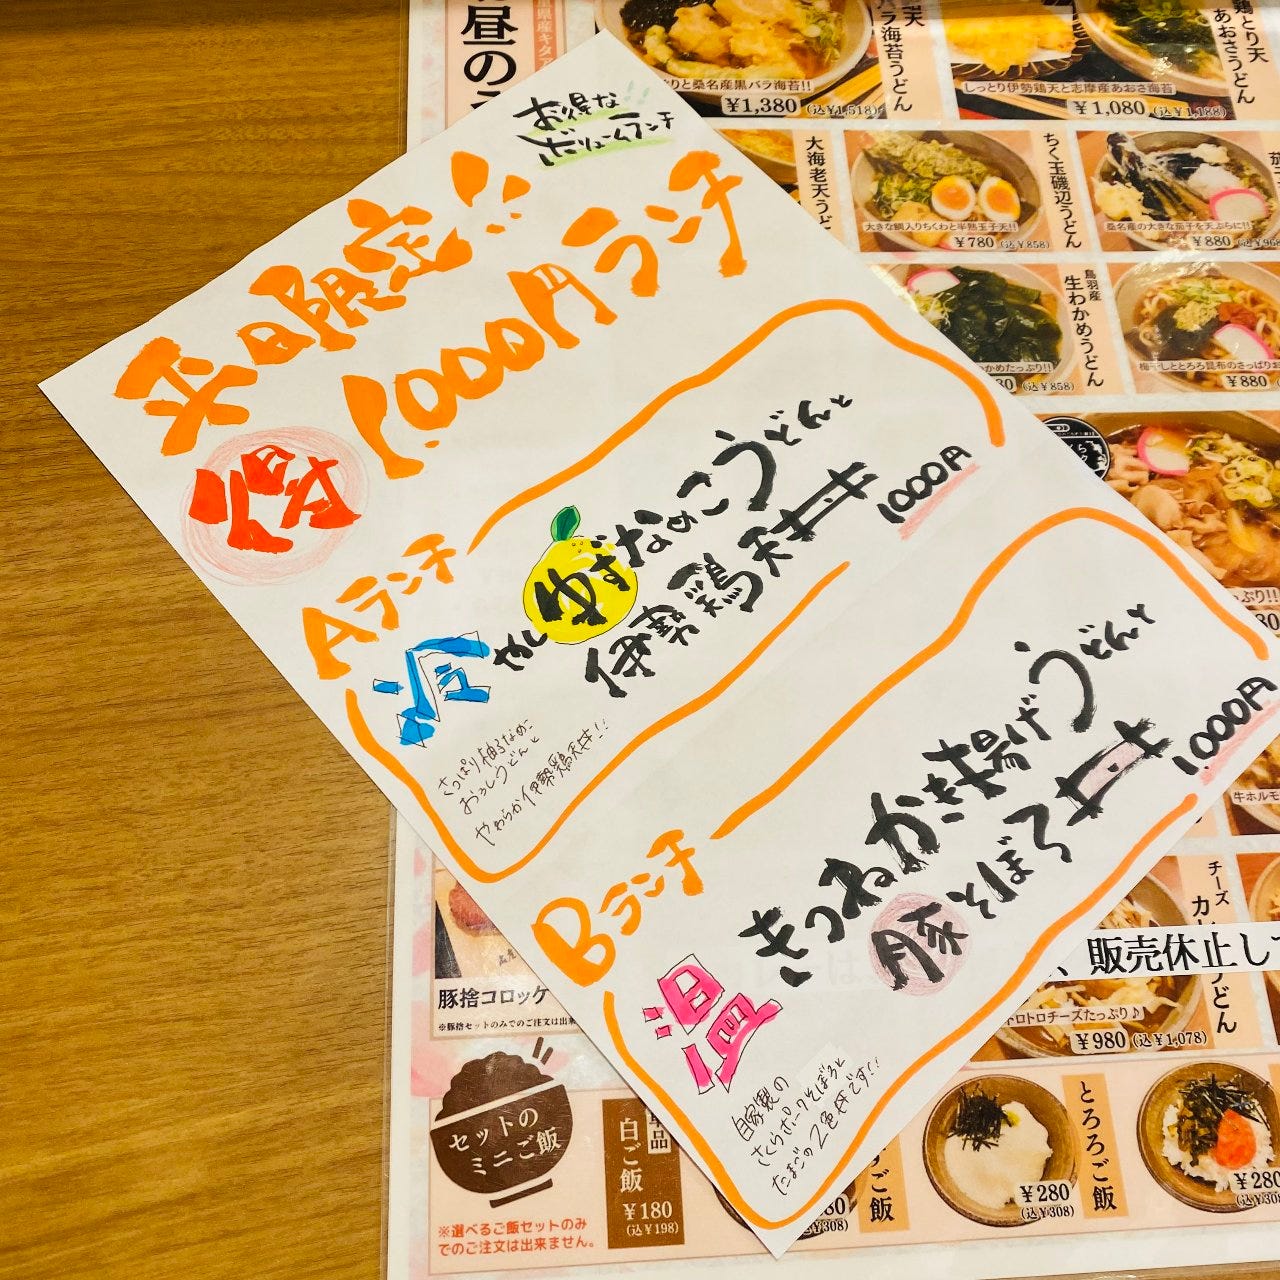 お得な!!
ボリュームランチ
平日限定!!
得
1,000円ランチ
Aランチ
冷やしゆずなめこうどんと
伊勢鶏天丼
1000円
さっぱり柚子なめこ
おろしうどんと
やわらか伊勢鶏天丼!!
Bランチ
温
きつねかき揚げうどんと
豚そぼろ丼
1,000円
自家製の
さくらポークそぼろと
たまごの2色丼です!!
昼の
バラ海苔うどん
りと桑名産黒バラ海苔!!
¥1,380(込¥1,518)
鶏とり天
あおさうどん
しっとり伊勢鶏天と志摩産あおさ海苔
¥1,080(込¥1,188)
大海老天うど
ちく玉磯辺うどん
大きな鯛入りちくわと半熟玉子天!!
¥780(込¥858)
桑名産の大きな茄子を天ぷらに!!
¥880(込¥968
鳥羽産
生わかめうどん
かめたっぷり!!
(込¥858)
梅干しととろろ昆布のさっぱりお
¥880
ぷり!!
牛ホルモ
チーズ
トロトロチーズたっぷり♪
¥980(込¥1,078)
、販売休止し
豚捨コロッケ
※豚捨セットのみでのご注文は出来
セットの
ミニご飯
※選べるご飯セットのみ
でのご注文は出来ません。
単品
白ご飯
¥180
(込¥198)
(込¥308)
とろろご飯
¥280
(込¥308)
¥280